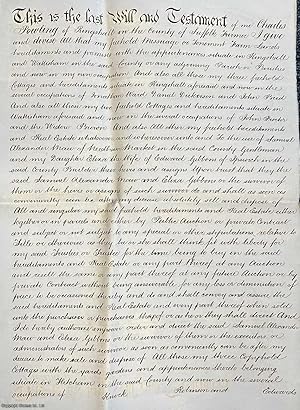 This is the last Will and Testament of me Charles
of Ringshall in the County of Suffolk Farmer I give
and devise All that my freehold Messuage or Tenement Farm Lands
hereditaments and premises with the appurtenances situate in Ringshall
and Wattisham in the said County or any adjoining Parish or Parishes
and now in my own occupation And also all those my three freehold
Cottages and hereditaments situate in Ringshall aforesaid and now in the
several occupations of and John
And also all those my two freehold Cottages and hereditaments situate in
Wattisham aforesaid and now in the occupations of John
and the Widow And also all other my freehold hereditaments
and Real Estate whatsoever and wheresoever unto and To the use of Samuel
Alexander of Needham Market in the said County Gentleman
and my Daughter Eliza the Wife of Edward Gibbons of in the said
County their heirs and assigns Upon trust that they the
said Samuel Alexander and Eliza Gibbons or the survivor of
them or the heirs or assigns of such survivor do and shall as soon as
conveniently can be after my decease absolutely sell and dispose of
All and singular my said freehold hereditaments and Real Estate either
together or in parcels and either by Public Auction or private Contract
and subject or not subject to any special or other stipulations relative to
Title or otherwise as they he or she shall think fit with liberty for
my said Trustees or Trustee for the time being to buy in the said
hereditaments and Real Estate or any part thereof at any Auction
and resell the same or any part thereof at any future Auction or by
private Contract without being answerable for any loss or diminution of
price to be occasioned thereby and do and shall convey and assure the
said hereditaments and Real Estate and every part thereof when sold
unto the purchaser or purchasers thereof or as he or they shall direct And
I do hereby authorize empower order and direct the said Samuel Alexander
and Eliza Gibbons or the survivor of them or the executors or
administrators of such survivor as soon as conveniently can be after my
decease to make sale and dispose of All those my three Copyhold
Cottages with the yards gardens and appurtenances thereto belonging
situate in in the said County and now in the several
occupations of Robinson and Edwards